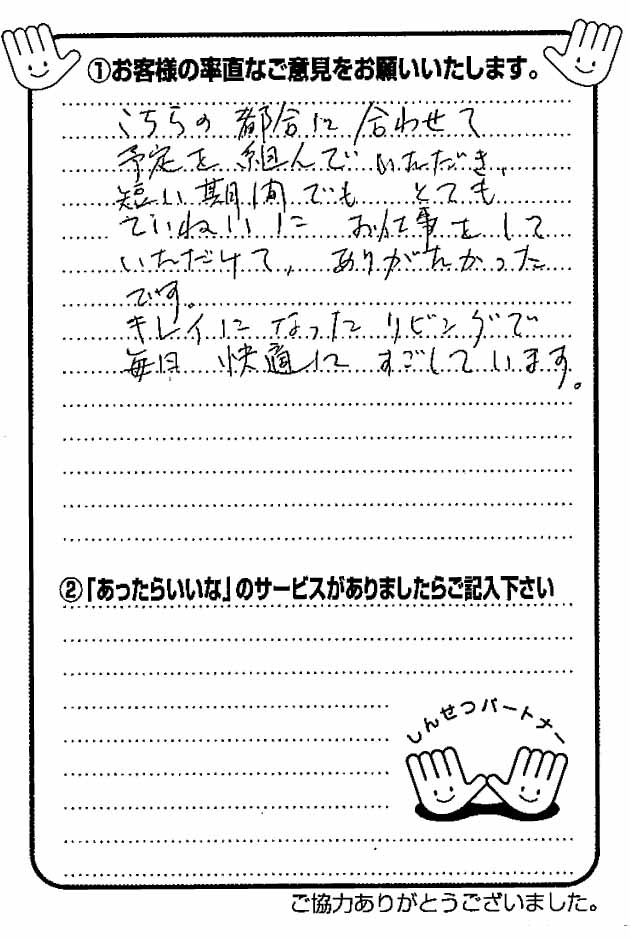 ①お客様の率直なご意見をお願いいたします。
こちらの都合に合わせて
予定を組んでいただき、
短い期間でも とても
ていねいに お仕事をして
いただけて、ありがたかった
です。
キレイになったリビングで
毎日 快適に すごしています。
②「あったらいいな」のサービスがありましたらご記入下さい
しんせつパートナー
ご協力ありがとうございました。